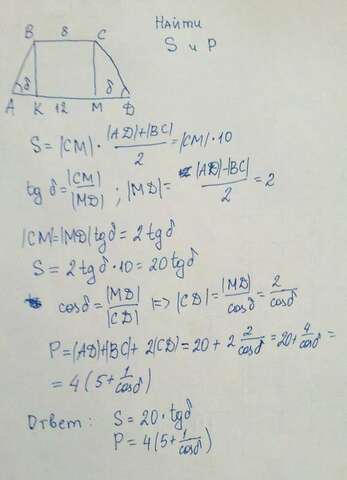 Найти
S и P
B 8 C
δ δ
A K 12 M D
S = |CM| · (|AD|+|BC|)/2 = |CM| · 10
tg δ = |CM|/|MD| ; |MD| = (|AD|-|BC|)/2 = 2
|CM| = |MD| tgδ = 2 tgδ
S = 2tgδ · 10 = 20tgδ
cosδ = |MD|/|CD| |=> |CD| = |MD|/cosδ = 2/cosδ
P = |AD|+|BC|+ 2|CD| = 20 + 2 2/cosδ = 20+ 4/cosδ =
= 4(5+ 1/cosδ)
Ответ: S = 20 · tgδ
P = 4(5+ 1/cosδ)